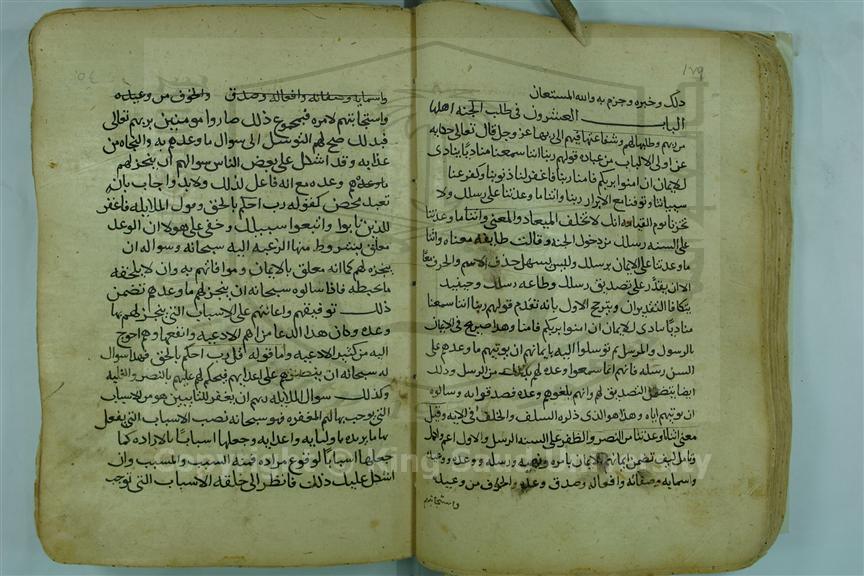 ١٧٩
ذلك وخبره وجزم به والله المستعان
الباب العشرون في طلب الجنة اهلها
من ربهم وطلبها لهم وشفاعتها فيهم الى ربها عز وجل قال تعالى حكاية
عن اولي الالباب من عباده قولهم ربنا اننا سمعنا مناديا ينادي
للايمان ان امنوا بربكم فامنا ربنا فاغفر لنا ذنوبنا وكفر عنا
سيياتنا وتوفنا مع الابرار ربنا واتنا ما وعدتنا على رسلك ولا
تخزنا يوم القيامه انك لا تخلف الميعاد والمعنى واتنا ما وعدتنا
على السنه رسلك من دخول الجنه وقالت طايفه معناه واتنا
ما وعدتنا على الايمان برسلك وليس يسهل حذف الاسم والحرف معا
الا ان يقدر على تصديق رسلك وطاعه رسلك وحينيذ
يتكافا التقديران ويترجح الاول بانه تقدم قولهم ربنا اننا سمعنا
مناديا ينادي للايمان ان امنوا بربكم فامنا وهذا صريح في الايمان
بالرسول والمرسل ثم توسلوا اليه بايمانهم ان يوتيهم ما وعدهم على
السن رسله فانهم انما سمعوا وعده لهم بذلك من الرسل وذلك
ايضا يتضمن التصديق لهم وانهم بلغوهم وعده فصدقوا به وسالوه
ان يوتيهم اياه وهذا هو الذي ذكره السلف والخلف في الايه وقيل
معنى اتنا ما وعدتنا من النصر والظفر على السنه الرسل والاول اعم واكمل
وتامل كيف تضمن ايمانهم به الايمان بامره ونهيه ورسله ووعده ووعيده
واسمايه وصفاته وافعاله وصدق وعده والخوف من وعيده
واستجابتهم
واسمايه وصفاته وافعاله وصدق والخوف من وعيده
واستجابتهم لامره فبمجموع ذلك صاروا مومنين بربهم تعالى
فبذلك صح لهم التوسل الى سوال ما وعدهم به والنجاه من
عذابه وقد اشكل على بعض الناس سوالهم ان ينجز لهم
ما وعدهم وعده مع انه فاعل لذلك ولابد واجاب بان
تعبد محض كقوله رب احكم بالحق وقول الملايكه فاغفر
للذين تابوا واتبعوا سبيلك وخفي على هولاء ان الوعد
معلق بشروط منها الرغبه اليه سبحانه وسواله ان
ينجزه لهم كما انه معلق بالايمان وموافاتهم به وان لا يلحقه
ما يحبطه فاذا سالوه سبحانه ان ينجز لهم ما وعدهم تضمن
ذلك توفيقهم واعانتهم على الاسباب التي ينجز لهم بها
وعده وكان هذا الدعا من اهم الادعيه وانفعها وهم احوج
اليه من كثير من الادعيه واما قوله قل رب احكم بالحق فهذا سوال
له سبحانه ان ينصرهم على اعدايهم فيحكم لهم عليهم بالنصر والغلبه
وكذلك سوال الملايكه ربهم ان يغفر للتايبين هو من الاسباب
التي يوجب بها لهم المغفره فهو سبحانه نصب الاسباب التي يفعل
بها ما يريده باوليايه واعدايه وجعلها اسبابا لارادته كما
جعلها اسبابا لوقوع مراده فمنه السبب والمسبب وان
اشكل عليك ذلك فانظر الى خلقه الاسباب التي توجب
Copyright © King Saud University